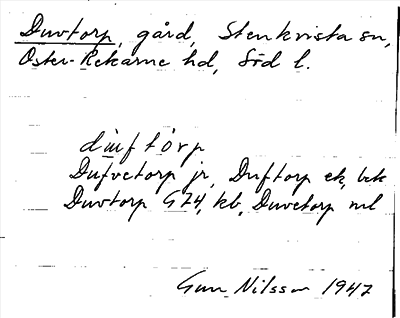 Duvtorp, gård, Stenkvista sn,
Öster-Rekarne hd, Söd l.
dùftórp
Dufvetorp jr, Duftorp ek, bek
Duvtorp G74, kb, Duvetorp ml
Gun Nilsson 1947